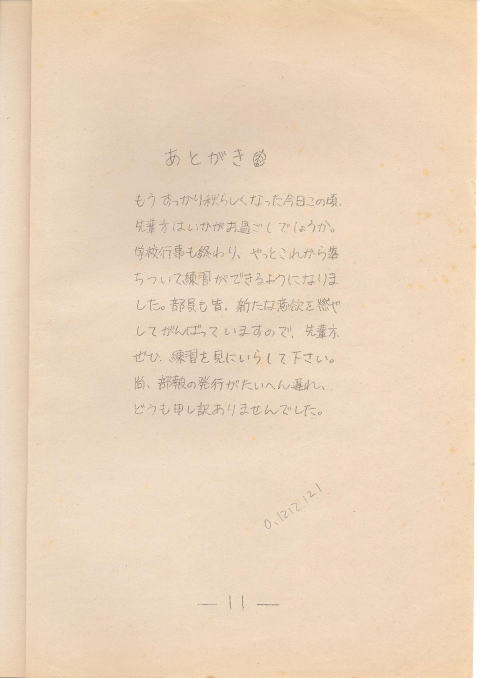 あとがき
もうすっかり秋らしくなった今日この頃、
先輩方はいかがお過ごしでしょうか。
学校行事も終わり、やっとこれから落
ちついて練習ができるようになりま
した。部員も皆、新たな意欲を燃や
してがんばっていますので、先輩方、
ぜひ、練習を見にいらして下さい。
尚、部報の発行がたいへん遅れ、
どうも申し訳ありませんでした。
— 11 —